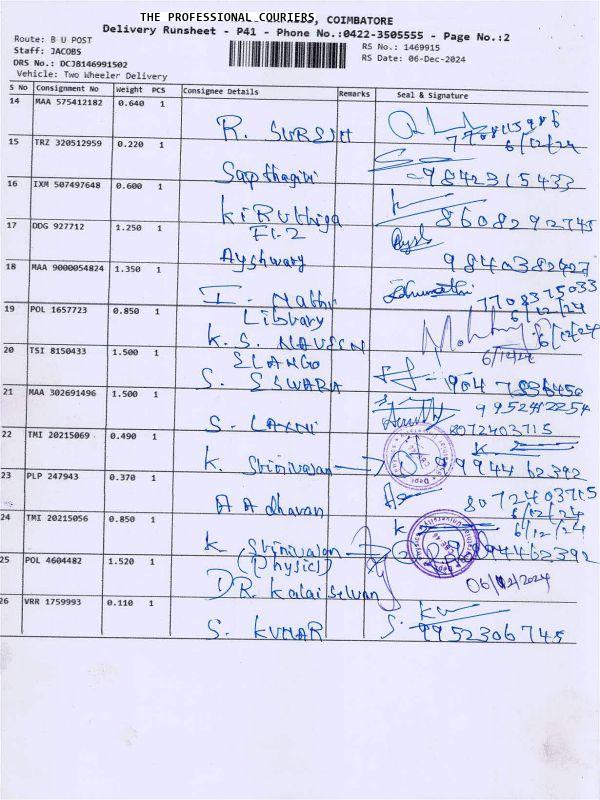 THE PROFESSIONAL COURIERS, COIMBATORE
Delivery Runsheet - P41 - Phone No.:0422-3505555 - Page No.:2
Route: B U POST
RS No.: 1469915
Staff: JACOBS
RS Date: 06-Dec-2024
DRS No.: DCJB146991502
Vehicle: Two Wheeler Delivery
S No Consignment No Weight PCS Consignee Details Remarks Seal & Signature
14 MAA 575412182 0.640 1
R. SURSIH
6/12/24
15 TRZ 320512959 0.220 1
Sapthagiri 9842315433
16 IXM 507497648 0.600 1
Kiruthiga 8608292745
17 DDG 927712 1.250 1
FL-2
Ayshwary 9840382427
18 MAA 9000054824 1.350 1
I. Nathi 7708375033
6/12/24
19 POL 1657723 0.850 1
Library
K. S. NAVEEN 6/12/24
6/12/24
20 TSI 8150433 1.500 1
ELANGO
S. ESWARA
21 MAA 302691496 1.500 1
9952422254
S. LAXNI 8072403715
22 TMI 20215069 0.490 1
K. Srinivasan 9994462392
23 PLP 247943 0.370 1
Aadhavan 8072403715
6/12/24
24 TMI 20215056 0.850 1
6/12/24
K Srinivasan 94462392
25 POL 4604482 1.520 1
(Physics)
DR. Kalaiselvan 06/12/2024
26 VRR 1759993 0.110 1
S. KUMAR S. 9952306745